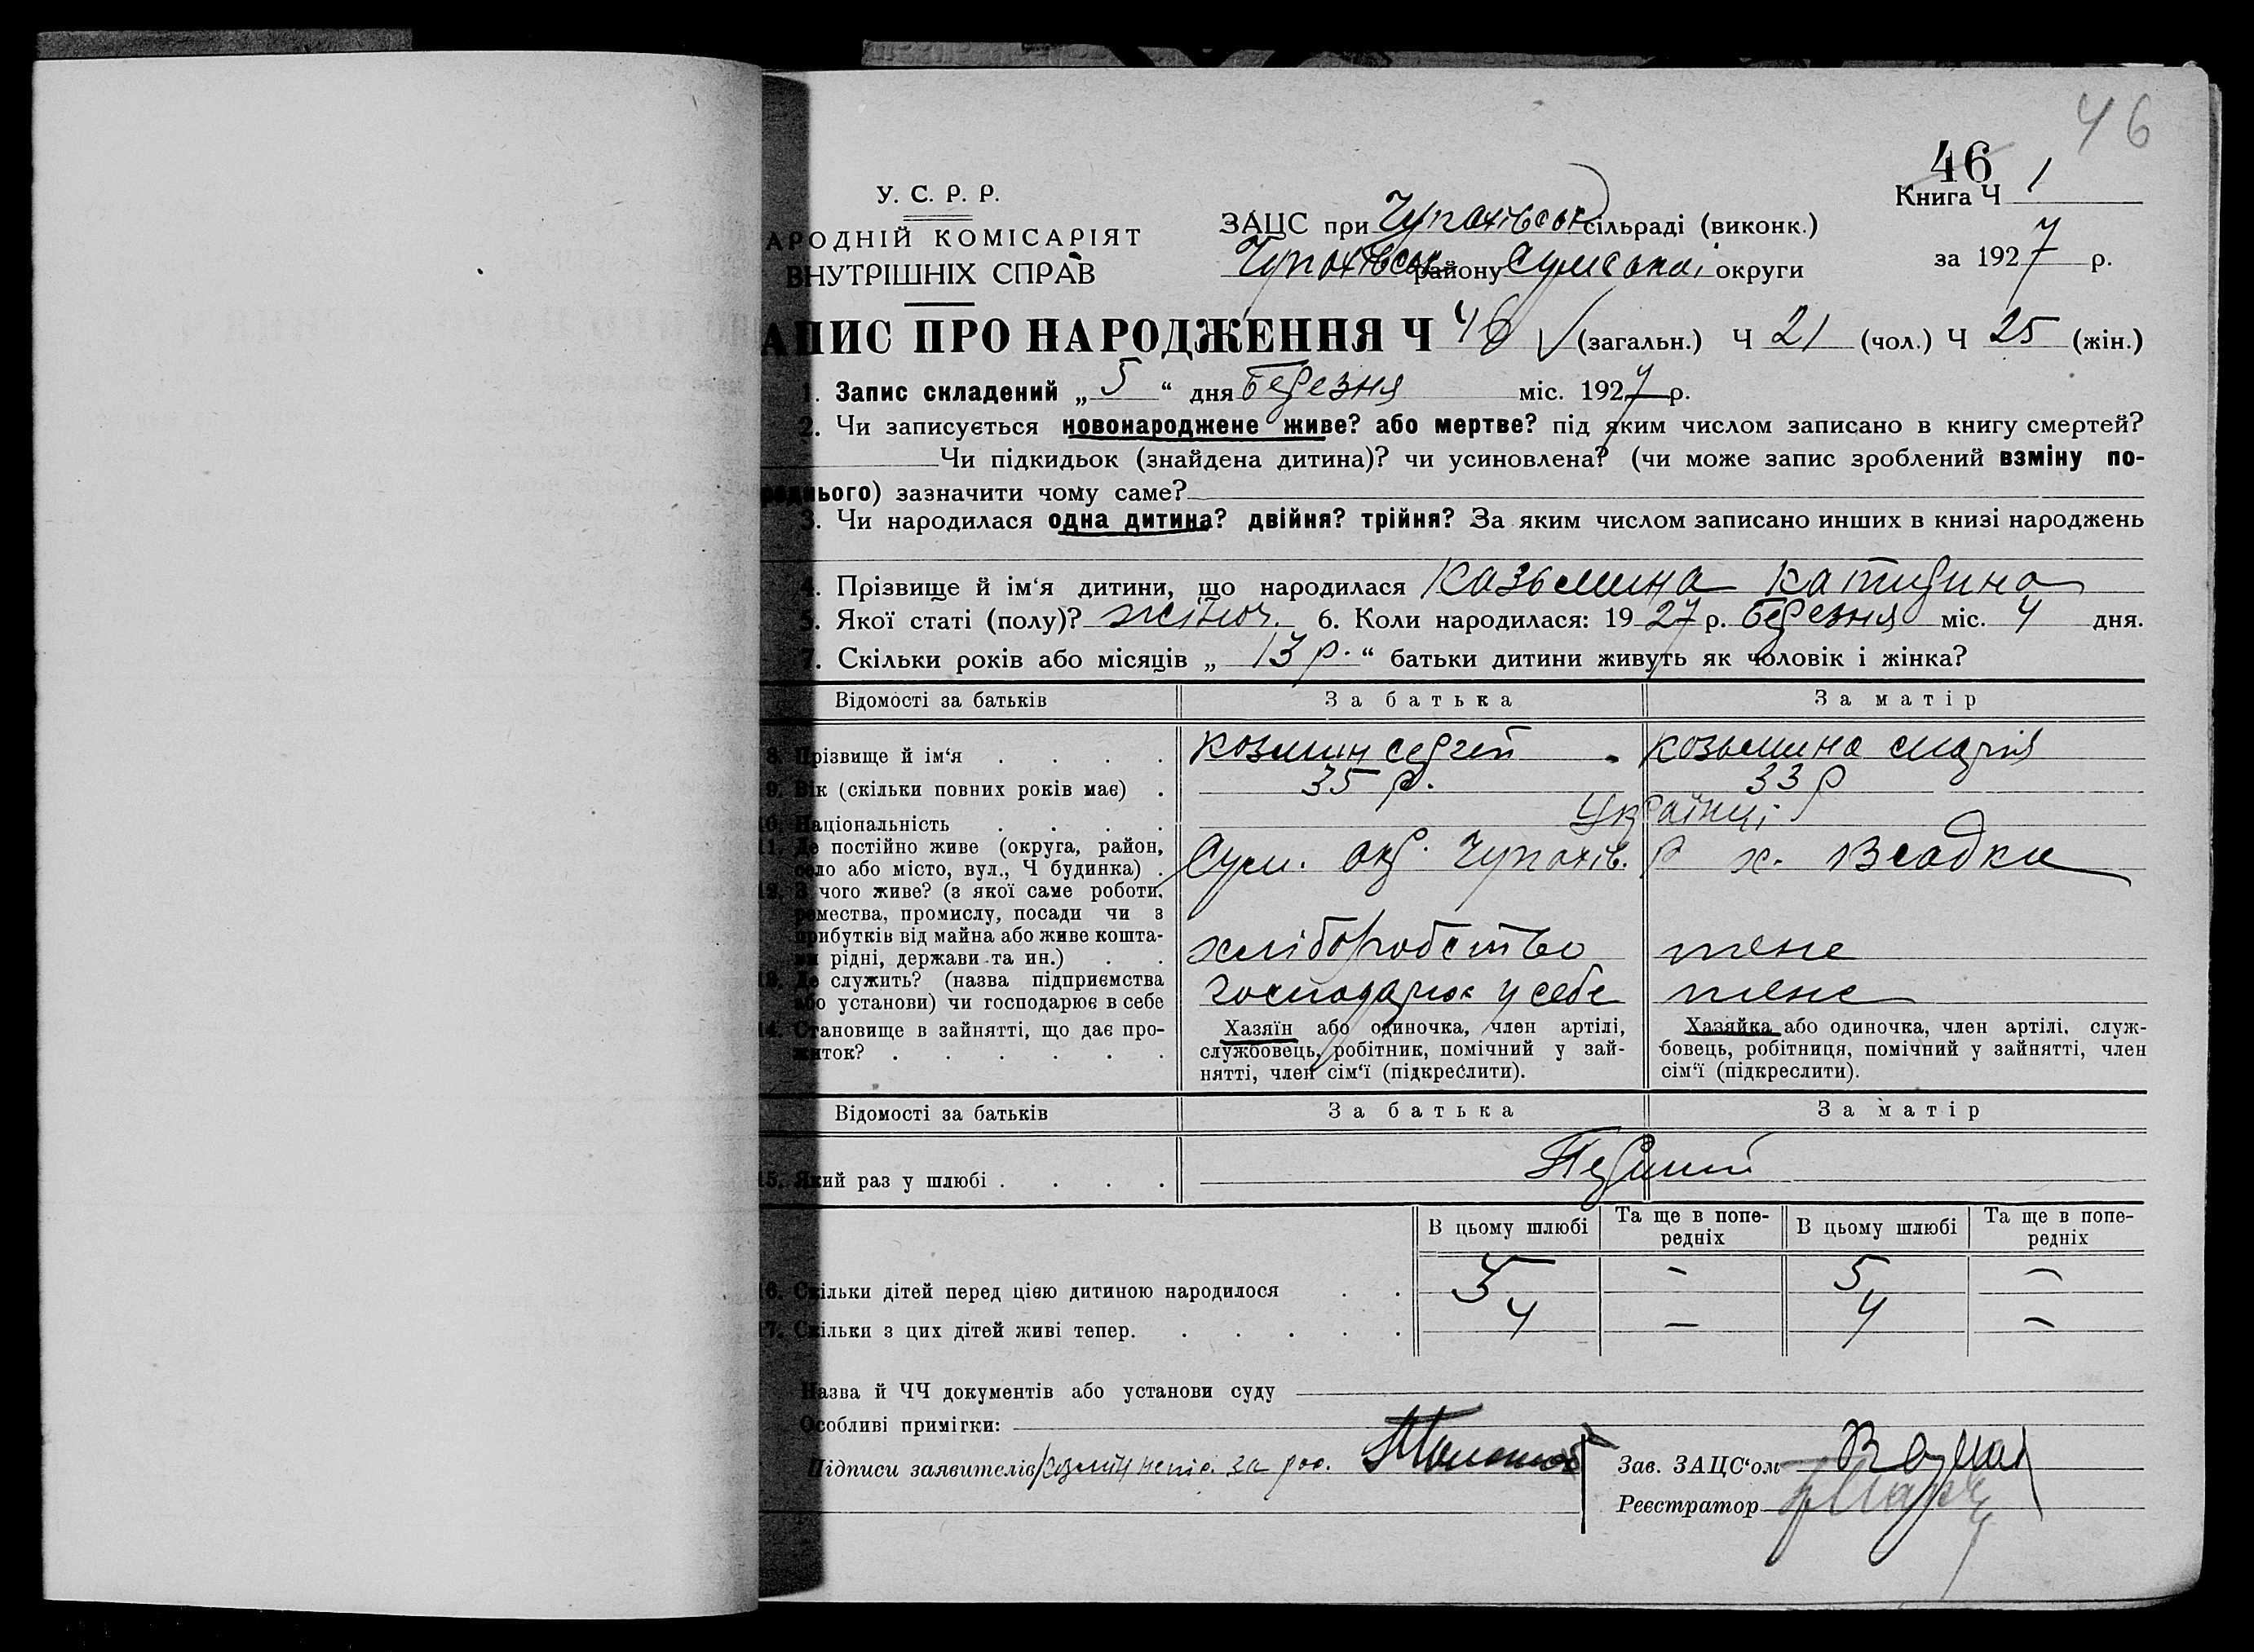 46
46
Книга Ч 1
У. С. Р. Р.
АРОДНІЙ КОМІСАРІЯТ
ВНУТРІШНІХ СПРАВ
ЗАЦС при Чупахівськ сільраді (виконк.)
Чупахівськ району Сумської округи
за 1927 р.
АПИС ПРО НАРОДЖЕННЯ Ч 46 (загальн.) Ч 21 (чол.) Ч 25 (жін.)
1. Запис складений „ 5 “ дня березня міс. 1927 р.
2. Чи записується новонароджене живе? або мертве? під яким числом записано в книгу смертей?
Чи підкидьок (знайдена дитина)? чи усиновлена? (чи може запис зроблений взміну по-
реднього) зазначити чому саме?
3. Чи народилася одна дитина? двійня? трійня? За яким числом записано инших в книзі народжень
4. Прізвище й ім‘я дитини, що народилася Казьмина Катирина
5. Якої статі (полу)? жіноч. 6. Коли народилася: 1927 р. березня міс. 4 дня.
7. Скільки років або місяців „ 13 р. “ батьки дитини живуть як чоловік і жінка?
Відомості за батьків За батька За матір
8. Прізвище й ім‘я . . . . Козмин Сергей Козьмина Марія
9. Вік (скільки повних років має) . 35 р. 33 р
10. Національність . . . . Українці
11. Де постійно живе (округа, район,
село або місто, вул., Ч будинка) . Сум. окр. Чупахів. р х. Всадки
12. З чого живе? (з якої саме роботи,
ремества, промислу, посади чи з
прибутків від майна або живе кошта-
ми рідні, держави та ин.) . . хліборобство тене
13. Де служить? (назва підприємства
або установи) чи господарює в себе господарює у себе тене
14. Становище в зайнятті, що дає про-
житок? . . . . . .
Хазяїн або одиночка, член артілі,
службовець, робітник, помічний у зай-
нятті, член сім‘ї (підкреслити).
Хазяйка або одиночка, член артілі, служ-
бовець, робітниця, помічний у зайнятті, член
сім‘ї (підкреслити).
Відомості за батьків За батька За матір
15. Який раз у шлюбі . . . . Первий
В цьому шлюбі Та ще в попе-
редніх В цьому шлюбі Та ще в попе-
редніх
16. Скільки дітей перед цією дитиною народилося . . 5 – 5 –
17. Скільки з цих дітей живі тепер. . . . . . 4 – 4 –
Назва й ЧЧ документів або установи суду
Особливі примітки:
Підписи заявителів Козмин непис. за рос.
Зав. ЗАЦС‘ом
Реєстратор